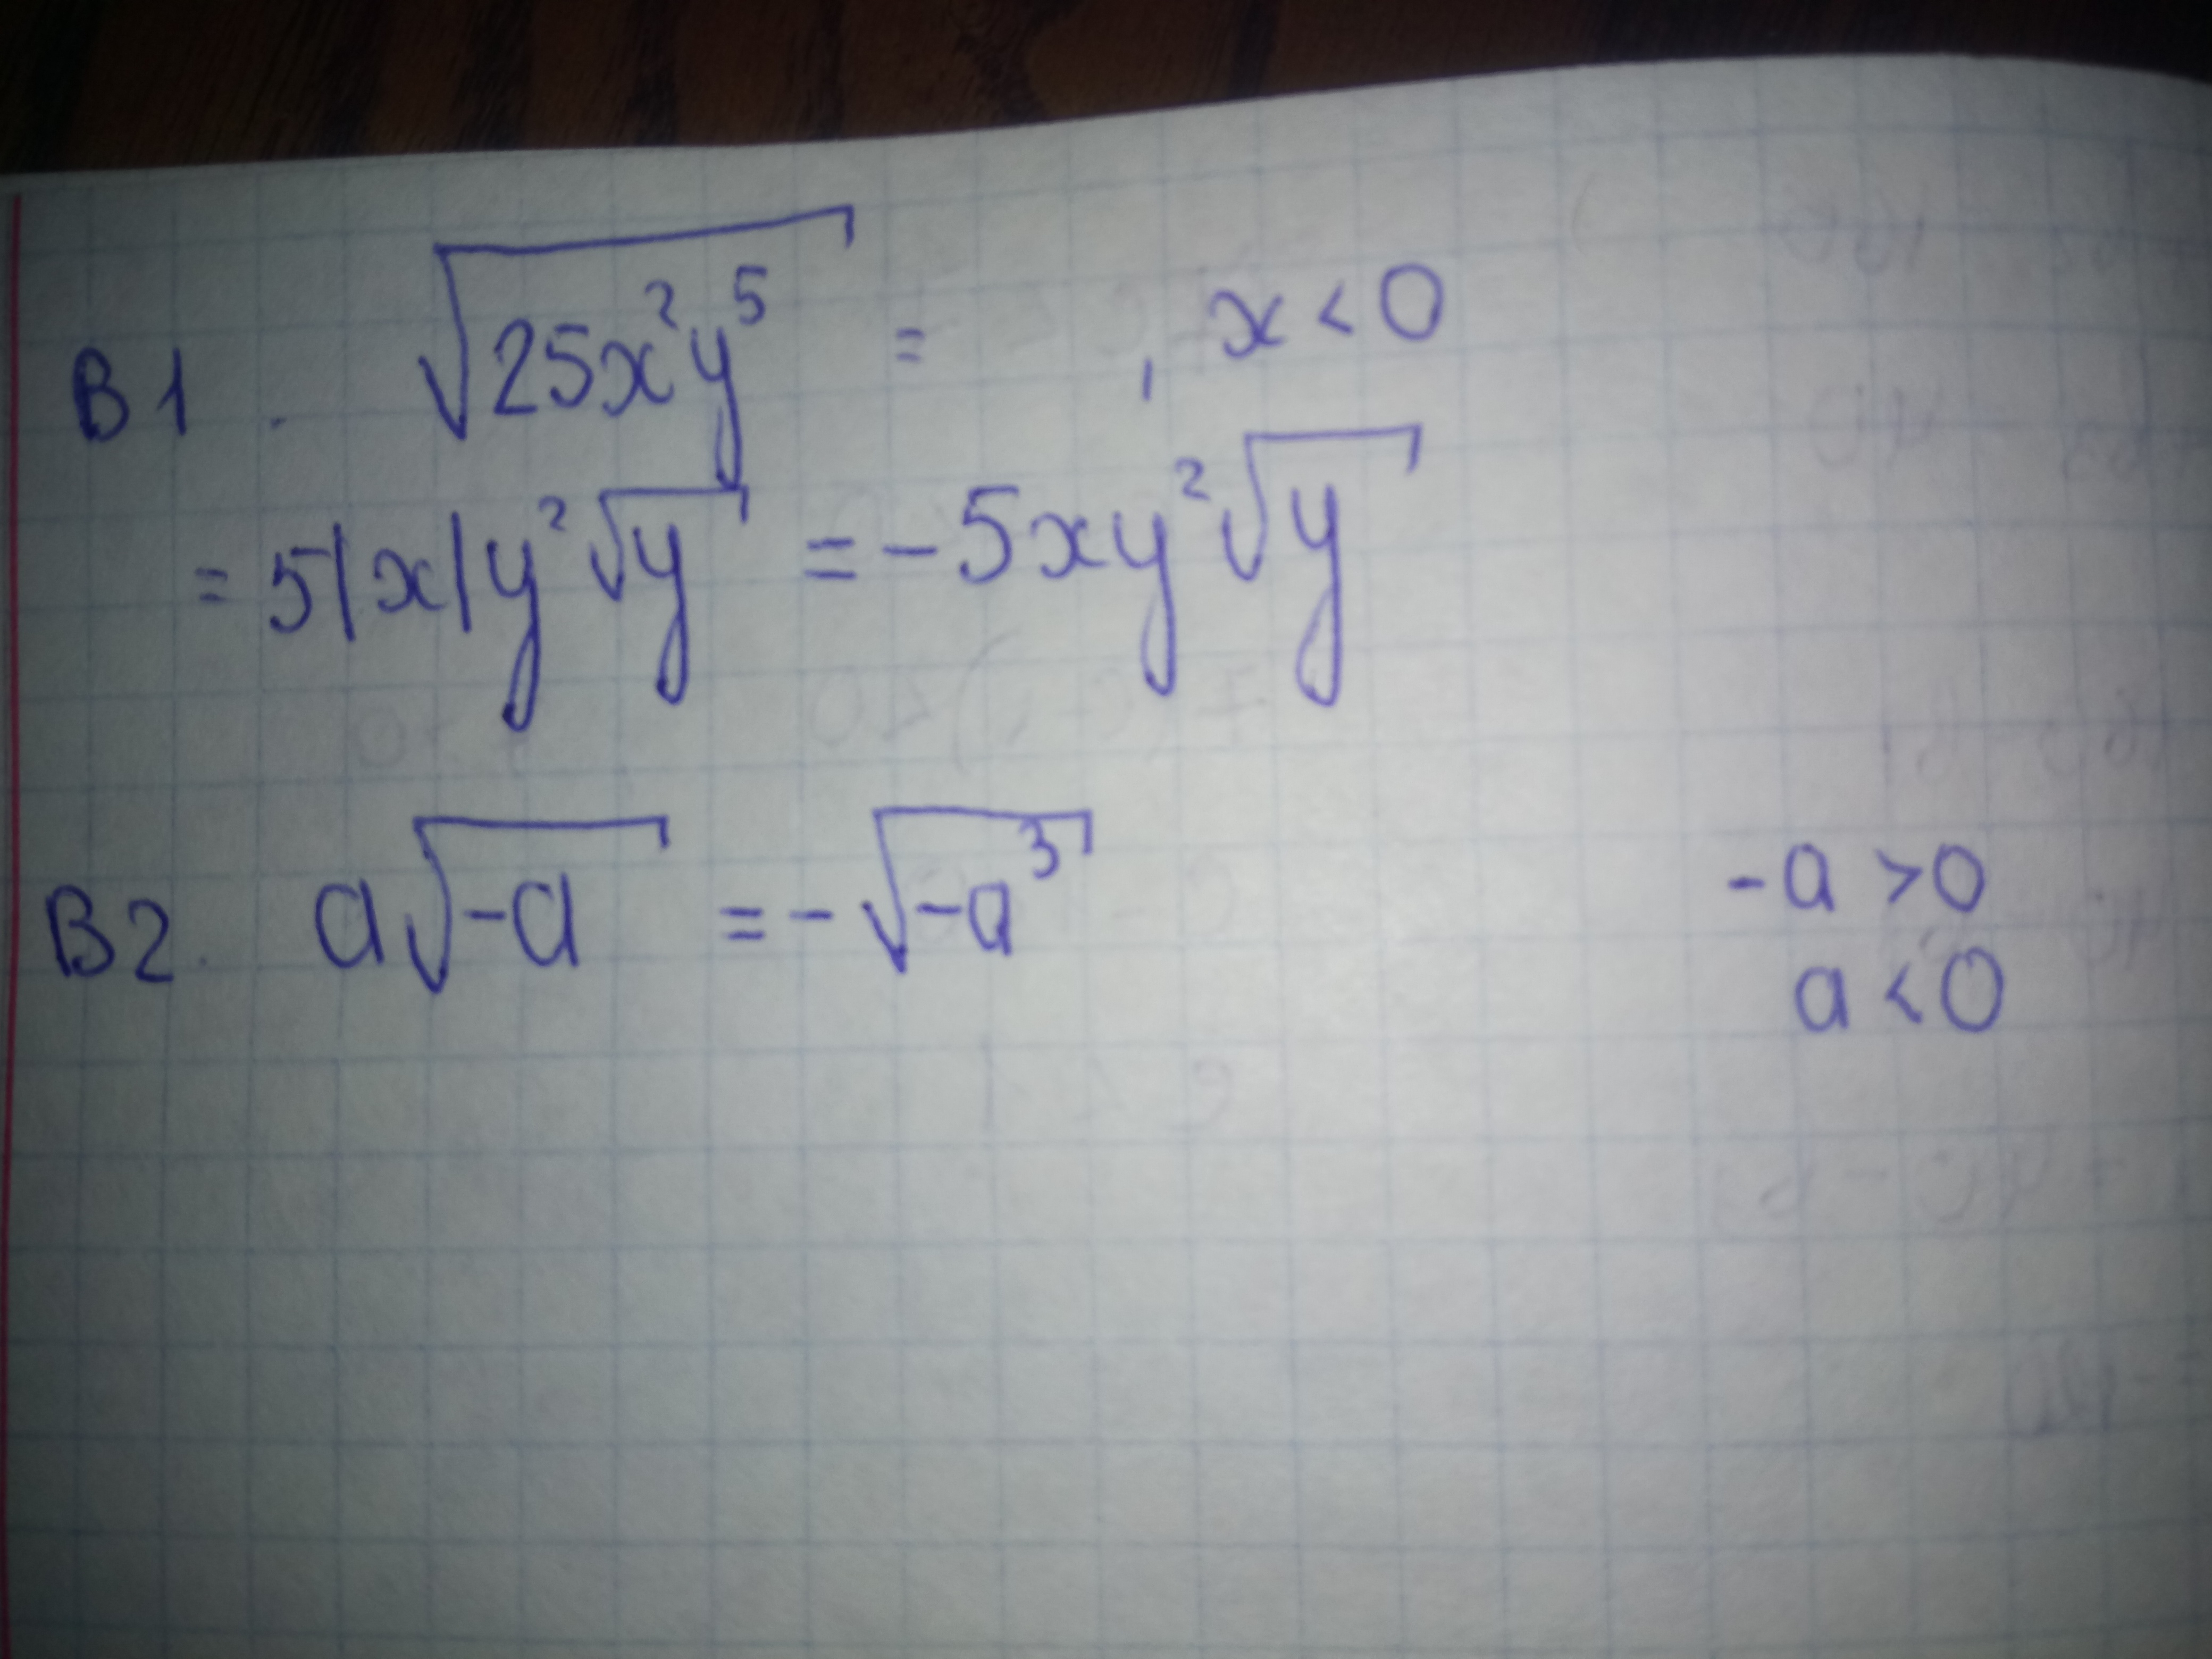 В1. √25x²y⁵ = , x < 0
= 5|x|y²√y = -5xy²√y
В2. a√-a = -√-a³ -a > 0
a < 0